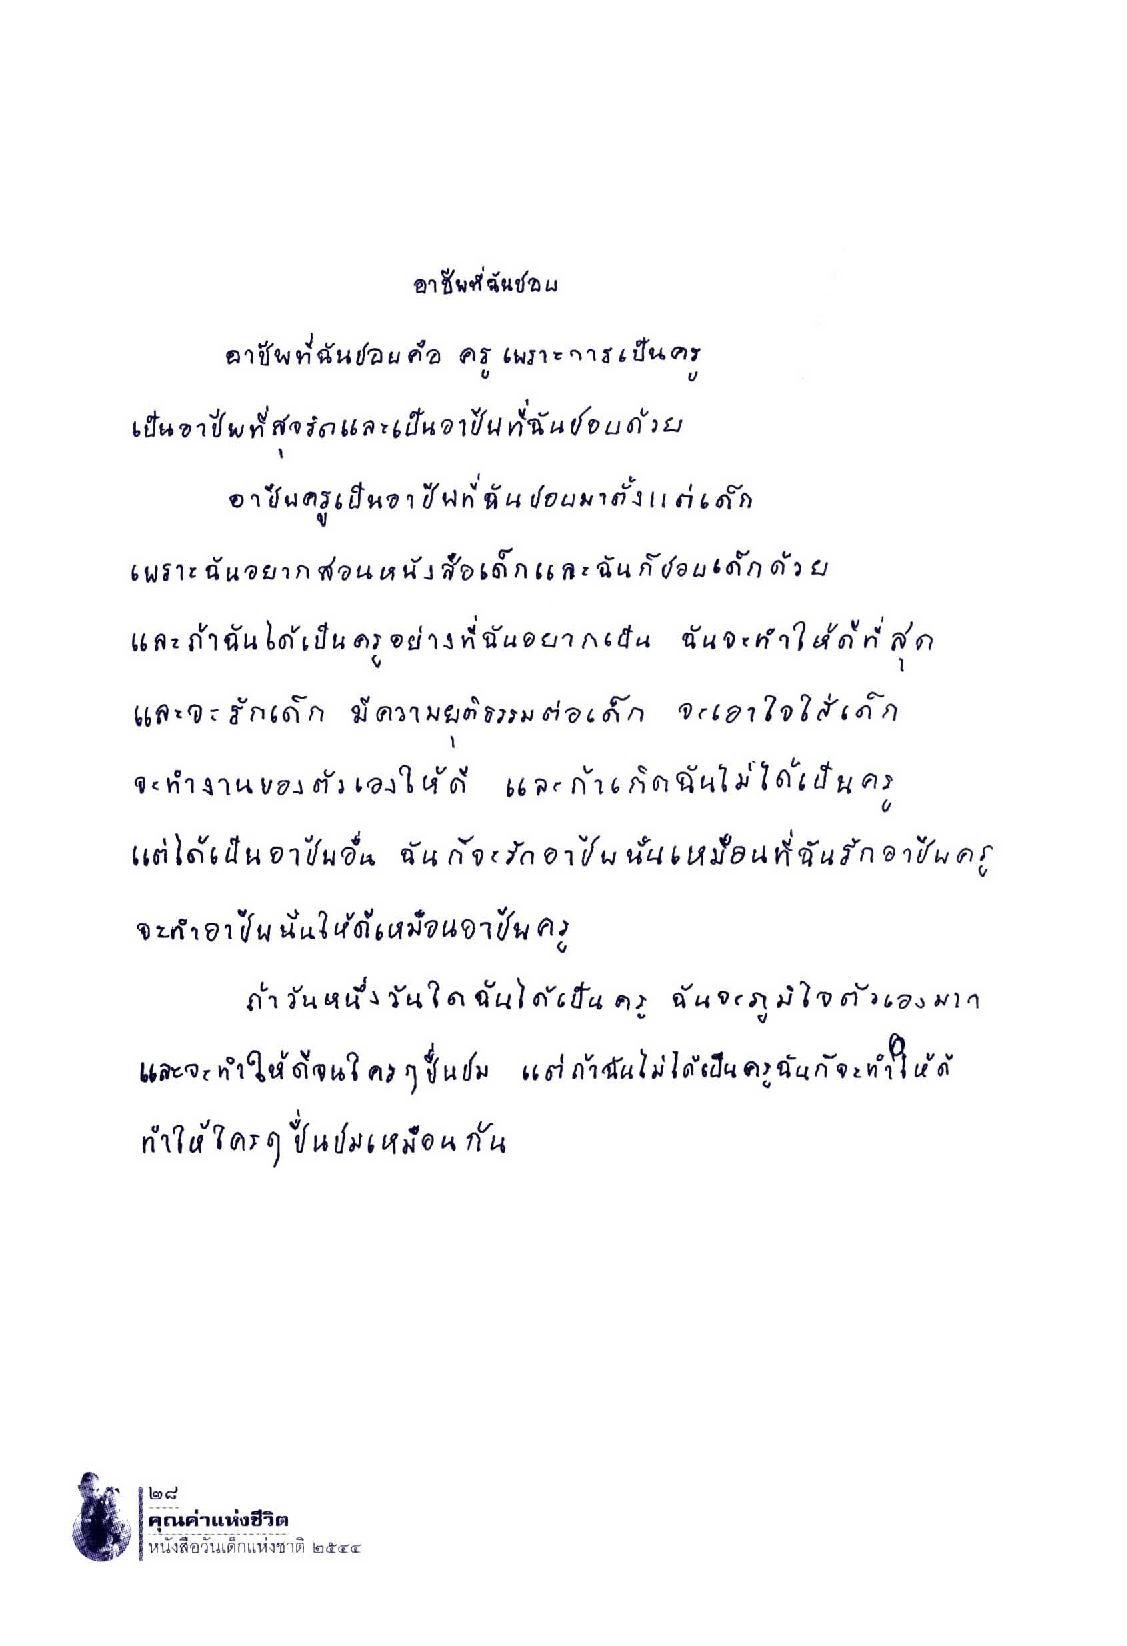 อาชีพที่ฉันชอบ
อาชีพที่ฉันชอบคือ ครู เพราะการเป็นครู
เป็นอาชีพที่สุจริตและเป็นอาชีพที่ฉันชอบด้วย
อาชีพครูเป็นอาชีพที่ฉันชอบมาตั้งแต่เด็ก
เพราะฉันอยากสอนหนังสือเด็กและฉันก็ชอบเด็กด้วย
และถ้าฉันได้เป็นครูอย่างที่ฉันอยากเป็น ฉันจะทำให้ดีที่สุด
และจะรักเด็ก มีความยุติธรรมต่อเด็ก จะเอาใจใส่เด็ก
จะทำงานของตัวเองให้ดี และถ้าเกิดฉันไม่ได้เป็นครู
แต่ได้เป็นอาชีพอื่น ฉันก็จะรักอาชีพนั้นเหมือนที่ฉันรักอาชีพครู
จะทำอาชีพนั้นให้ดีเหมือนอาชีพครู
ถ้าวันหนึ่งวันใดฉันได้เป็นครู ฉันจะภูมิใจตัวเองมาก
และจะทำให้ดีจนใครๆชื่นชม แต่ถ้าฉันไม่ได้เป็นครูฉันก็จะทำให้ดี
ทำให้ใครๆชื่นชมเหมือนกัน
๒๘
คุณค่าแห่งชีวิต
หนังสือวันเด็กแห่งชาติ ๒๕๔๔